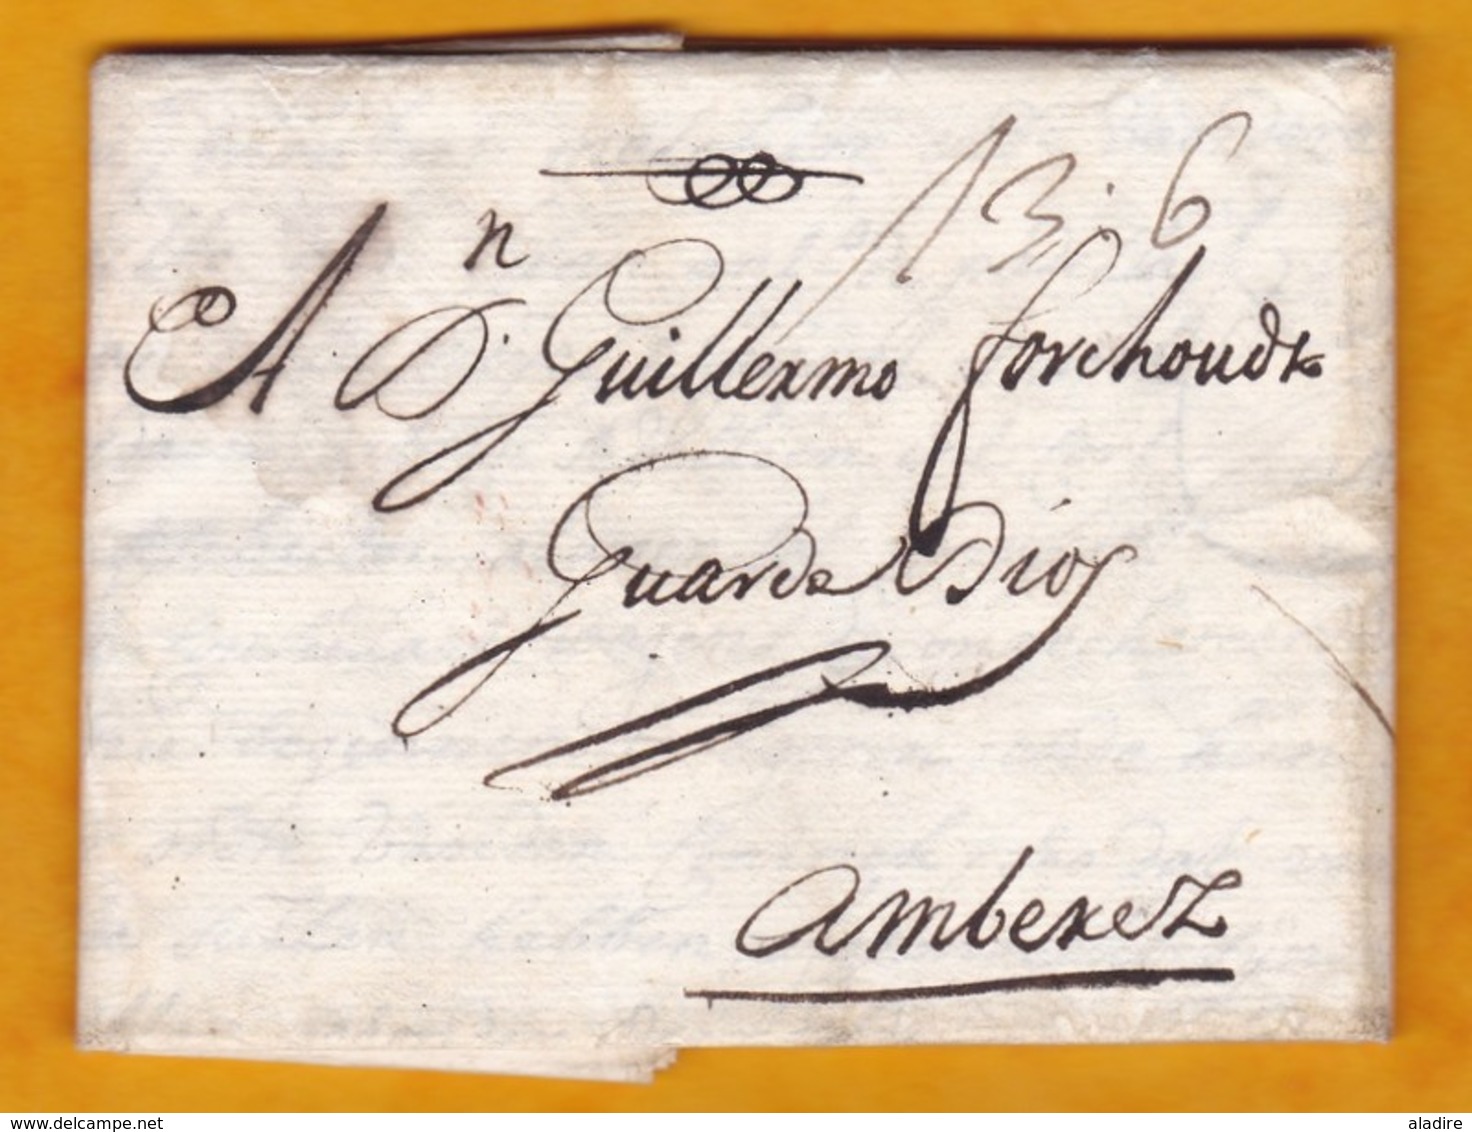 13·6
A Dn. Guillermo forchoudt
Guarde Dios
Amberez
delcampe.net
aladire